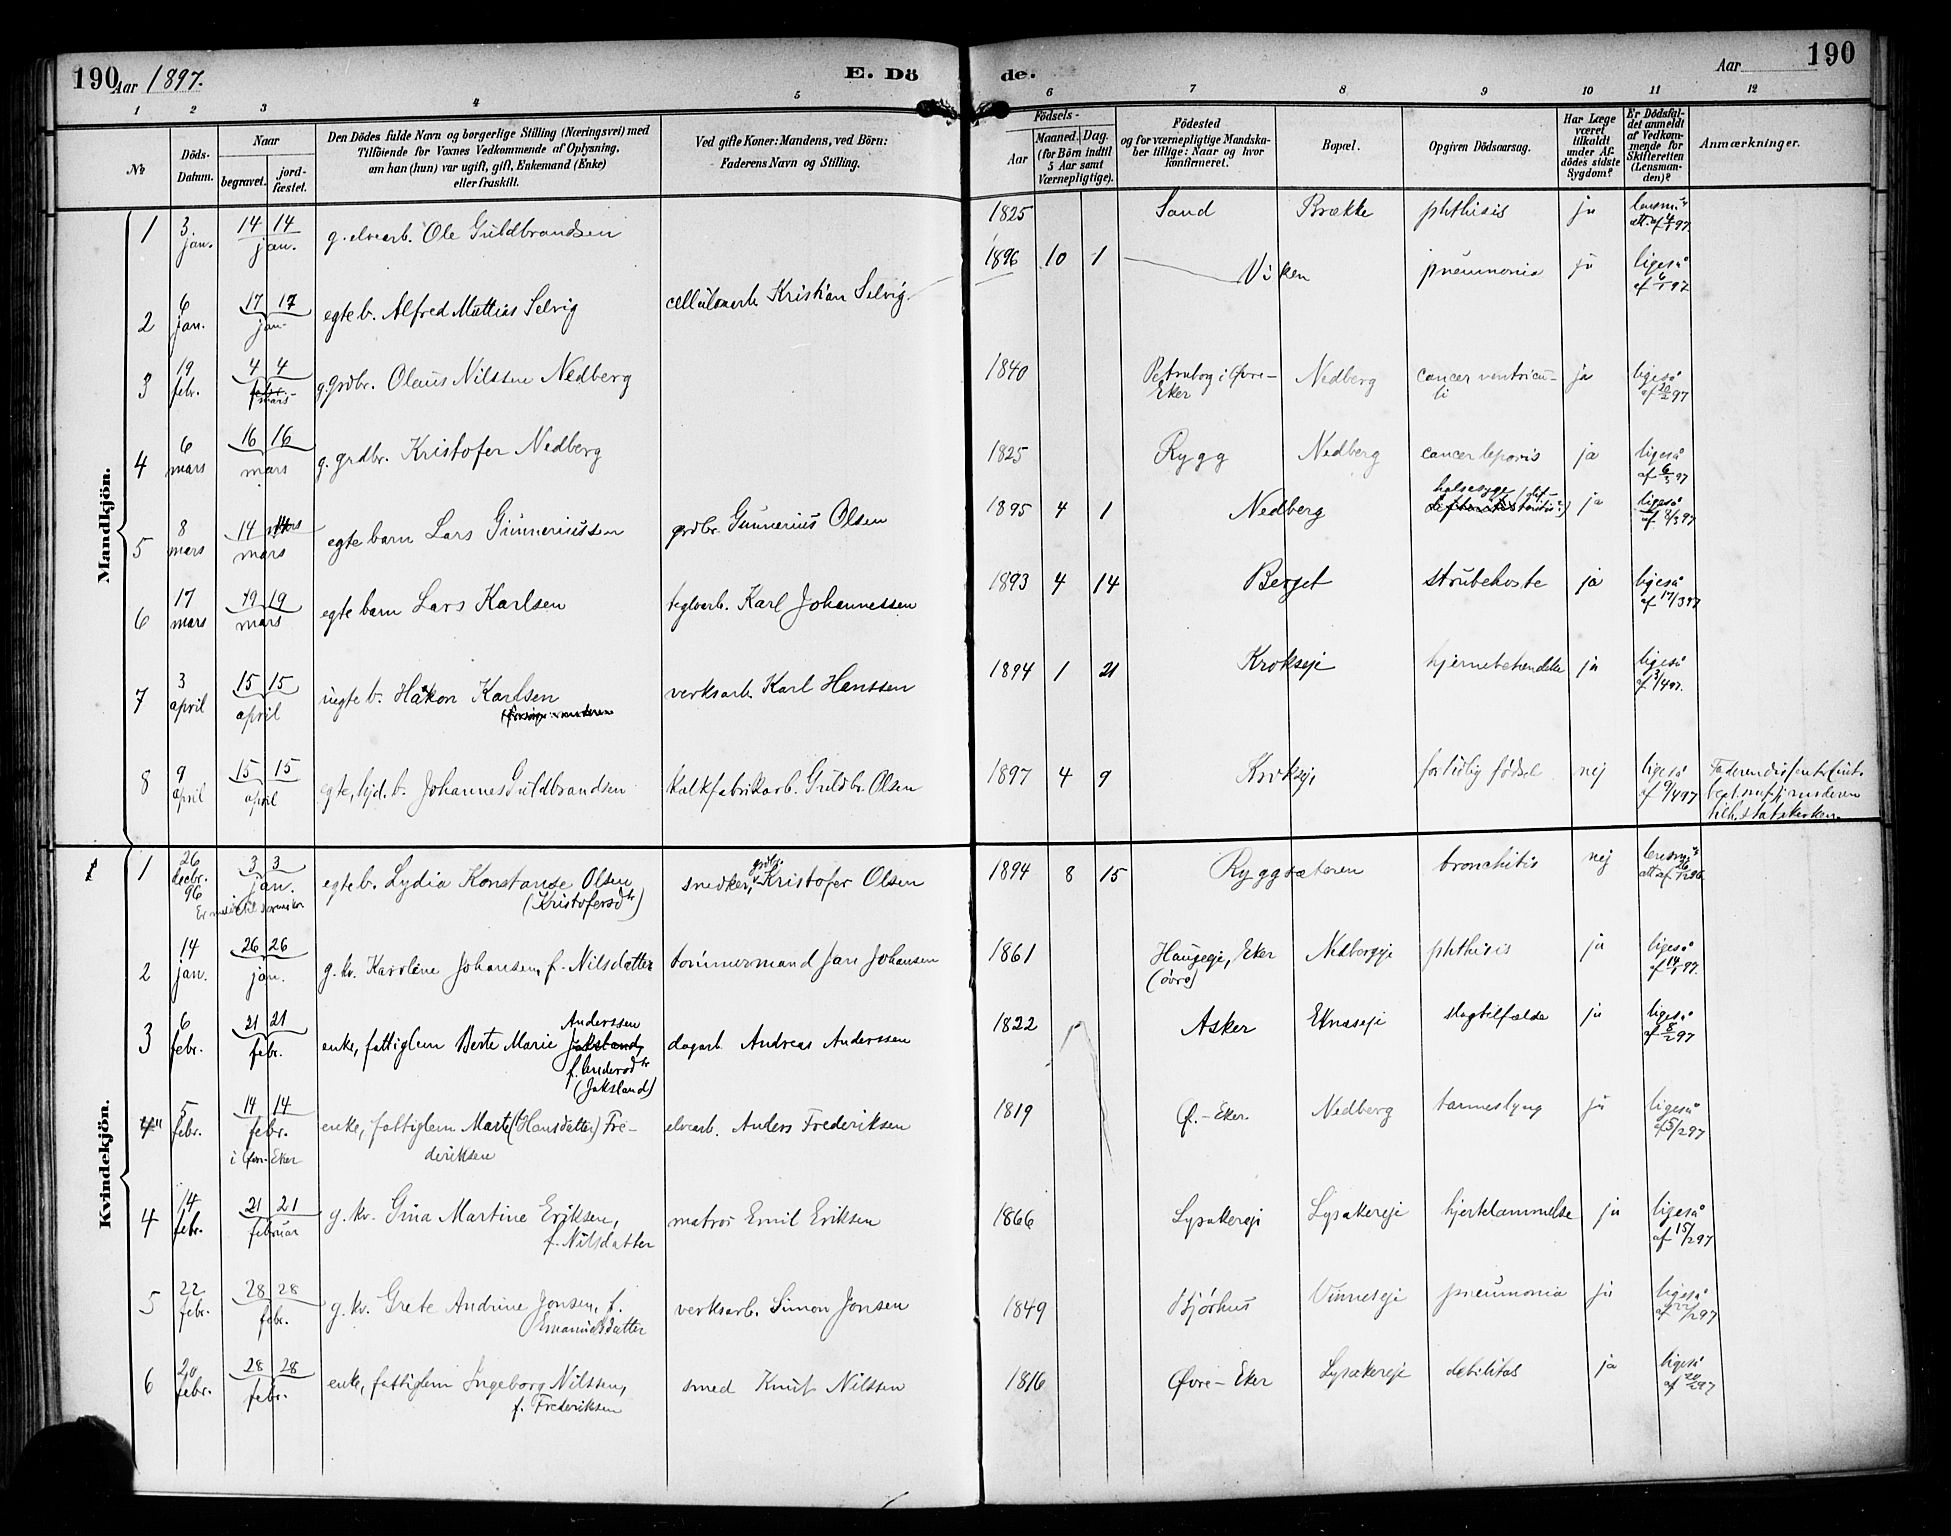 190 Aar 1897. E. Dö
de. Aar 190
1 2 3 4 5 6 7 8 9 10 11 12
No
Döds-
Datum.
Naar
begravet.
jord-
fæstet.
Den Dödes fulde Navn og borgerlige Stilling (Næringsvei) med
Tilföiende for Voxnes Vedkommende af Oplysning,
om han (hun) var ugift, gift, Enkemand (Enke)
eller fraskilt.
Ved gifte Koner: Mandens, ved Börn:
Faderens Navn og Stilling.
Födsels-
Aar
Maaned. Dag.
(for Börn indtil
5 Aar samt
Værnepligtige).
Födested
og for værnepligtige Mandska-
ber tillige: Naar og hvor
konfirmeret.
Bopæl.
Opgiven Dödsaarsag.
Har Læge
været
tilkaldt
under Af-
dödes sidste
Sygdom?
Er Dödsfal-
det anmeldt
af Vedkom-
mende for
Skifteretten
(Lensman-
den)?
Anmærkninger.
Mandkjön.
1 3. jan. 14 14 jan. g. elvearb. Ole Guldbrandsen 1825 Sand Brække phthisis ja lensm. att. af 4/1 97
2 6 jan. 17 17 jan. egte b. Alfred Mattias Selvig cellulosearb. Kristian Selvig 1896 10 1 Viken pneumonia ja ligeså af 6/1 97
3 19 febr. 4 4 mars g. grdbr. Olaus Nilssen Nedberg 1840 i Øvre-
Eker Nedberg cancer ventricu-
li ja ligeså af 20/2 97
4 6 mars 16 16 mars g. grdbr. Kristofer Nedberg 1825 Rygg Nedberg cancer leporis ja ligeså af 6/3 97
5 8 mars 14 14 mars egte barn Lars Gunneriussen grdbr. Gunnerius Olsen 1895 4 1 Nedberg halsesyge ja ligeså af 8/3 97
6 17 mars 19 19 mars egte barn Lars Karlsen teglverb. Karl Johannessen 1893 4 14 Berget strubehoste ja ligeså af 17/3 97
7 3 april 15 15 april uegte b. Håkon Karlsen verksarb. Karl Hanssen 1894 1 21 Krokseje hjernebetændelse ja ligeså af 3/4 97.
8 9 april 15 15 april egte, hjd. b. Johannes Guldbrandsen Kalkfabrikarb. Guldbr. Olsen 1897 4 9 Krokseje for tidlig fødsel nej ligeså af 9/4 97 Faderen dissenter
moderen
tilh. statskirken.
Kvindekjön.
1 26 decbr. 96 3 3 jan. egte b. Lydia Konstanse Olsen
(Kristofersdtr) snedker, grdbr. Kristofer Olsen 1894 8 15 Ryggsæteren bronchitis nej lensm. att. af 26/12 96
2 14 jan. 26 26 jan. g. kv. Karoline Johansen, f. Nilsdatter tømmermand Jan Johansen 1861 Haugeje, Eker
(øvre) Nedbergeje phthisis ja ligeså af 14/1 97.
3 6 febr. 21 21 febr. enke, fattiglem Berte Marie Anderssen Jaksland,
f. Andersdtr
(Jaksland) dagarb. Andreas Anderssen 1822 Asker Eknaseje slagtilfælde ja ligeså af 8/2 97
4" 5 febr. 14 14 febr.
i Øvre Eker enke, fattiglem Marte (Hansdatter) Fre-
deriksen elvearb. Anders Frederiksen 1819 Ø.-Eker. Nedberg ja ligeså af 5/2 97
4 14 febr. 21 21 februar g. kv. Gina Martine Eriksen,
f. Nilsdatter matros Emil Eriksen 1866 Lysakereje Lysakereje hjertelammelse ja ligeså af 15/2 97
5 22 febr. 28 28 febr. g. kv. Grete Andrine Jonsen, f.
Emanuelsdatter verksarb. Simon Jonsen 1849 Vinneseje pneumonia ja ligeså af 22/2 97
6 20 febr. 28 28 febr. enke, fattiglem Ingeborg Nilssen,
f. Frederiksen smed Knut Nilssen 1816 Øvre-Eker Lysakereje debilitas ja ligeså af 20/2 97